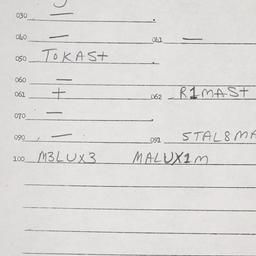 030 —
040 — 041 —
050 TOKASt
060 —
061 + 062 R1MASt
070 —
090 — 091 STAL8MA
100 M3LUX3 MALUX1M